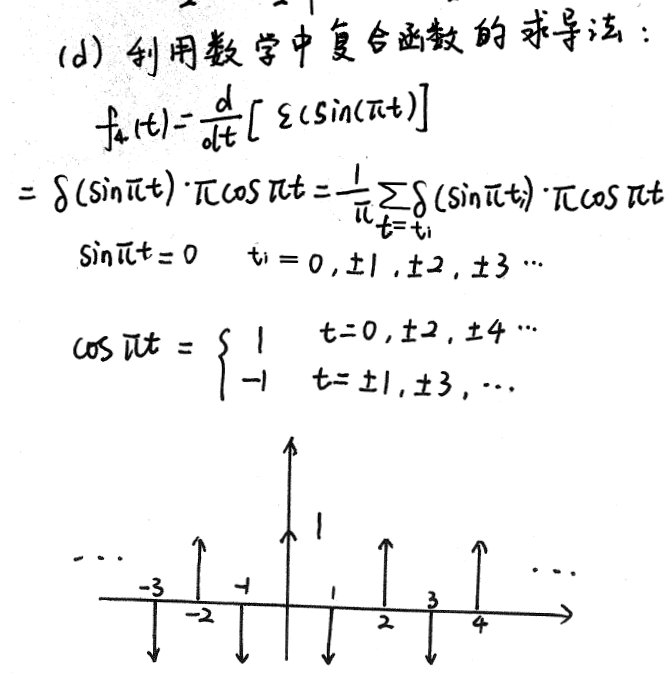 (d) 利用数学中复合函数的求导法：
f₄(t)=d/dt[ε(sin(πt)]
= δ(sinπt)·πcosπt=1/π ∑_{t=tᵢ} δ(sinπtᵢ)·πcosπt
sinπt=0 tᵢ=0,±1,±2,±3⋯
cosπt = { 1 t=0,±2,±4⋯
-1 t=±1,±3,⋯
1
⋯ ⋯
-3 -2 -1 1 2 3 4